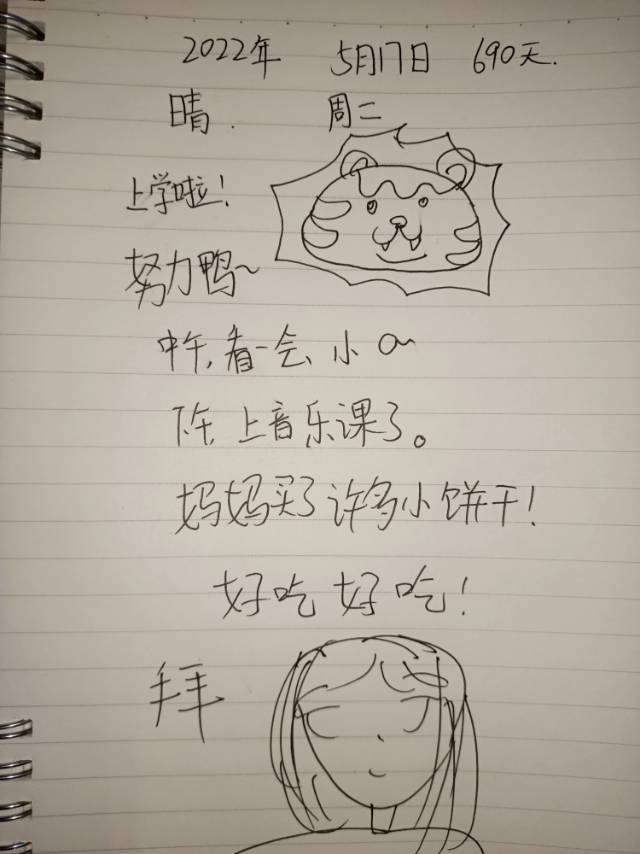 2022年 5月17日 690天.
晴. 周二
上学啦!
努力鸭~
中午,看一会小a~
下午上音乐课了。
妈妈买了许多小饼干!
好吃好吃!
拜